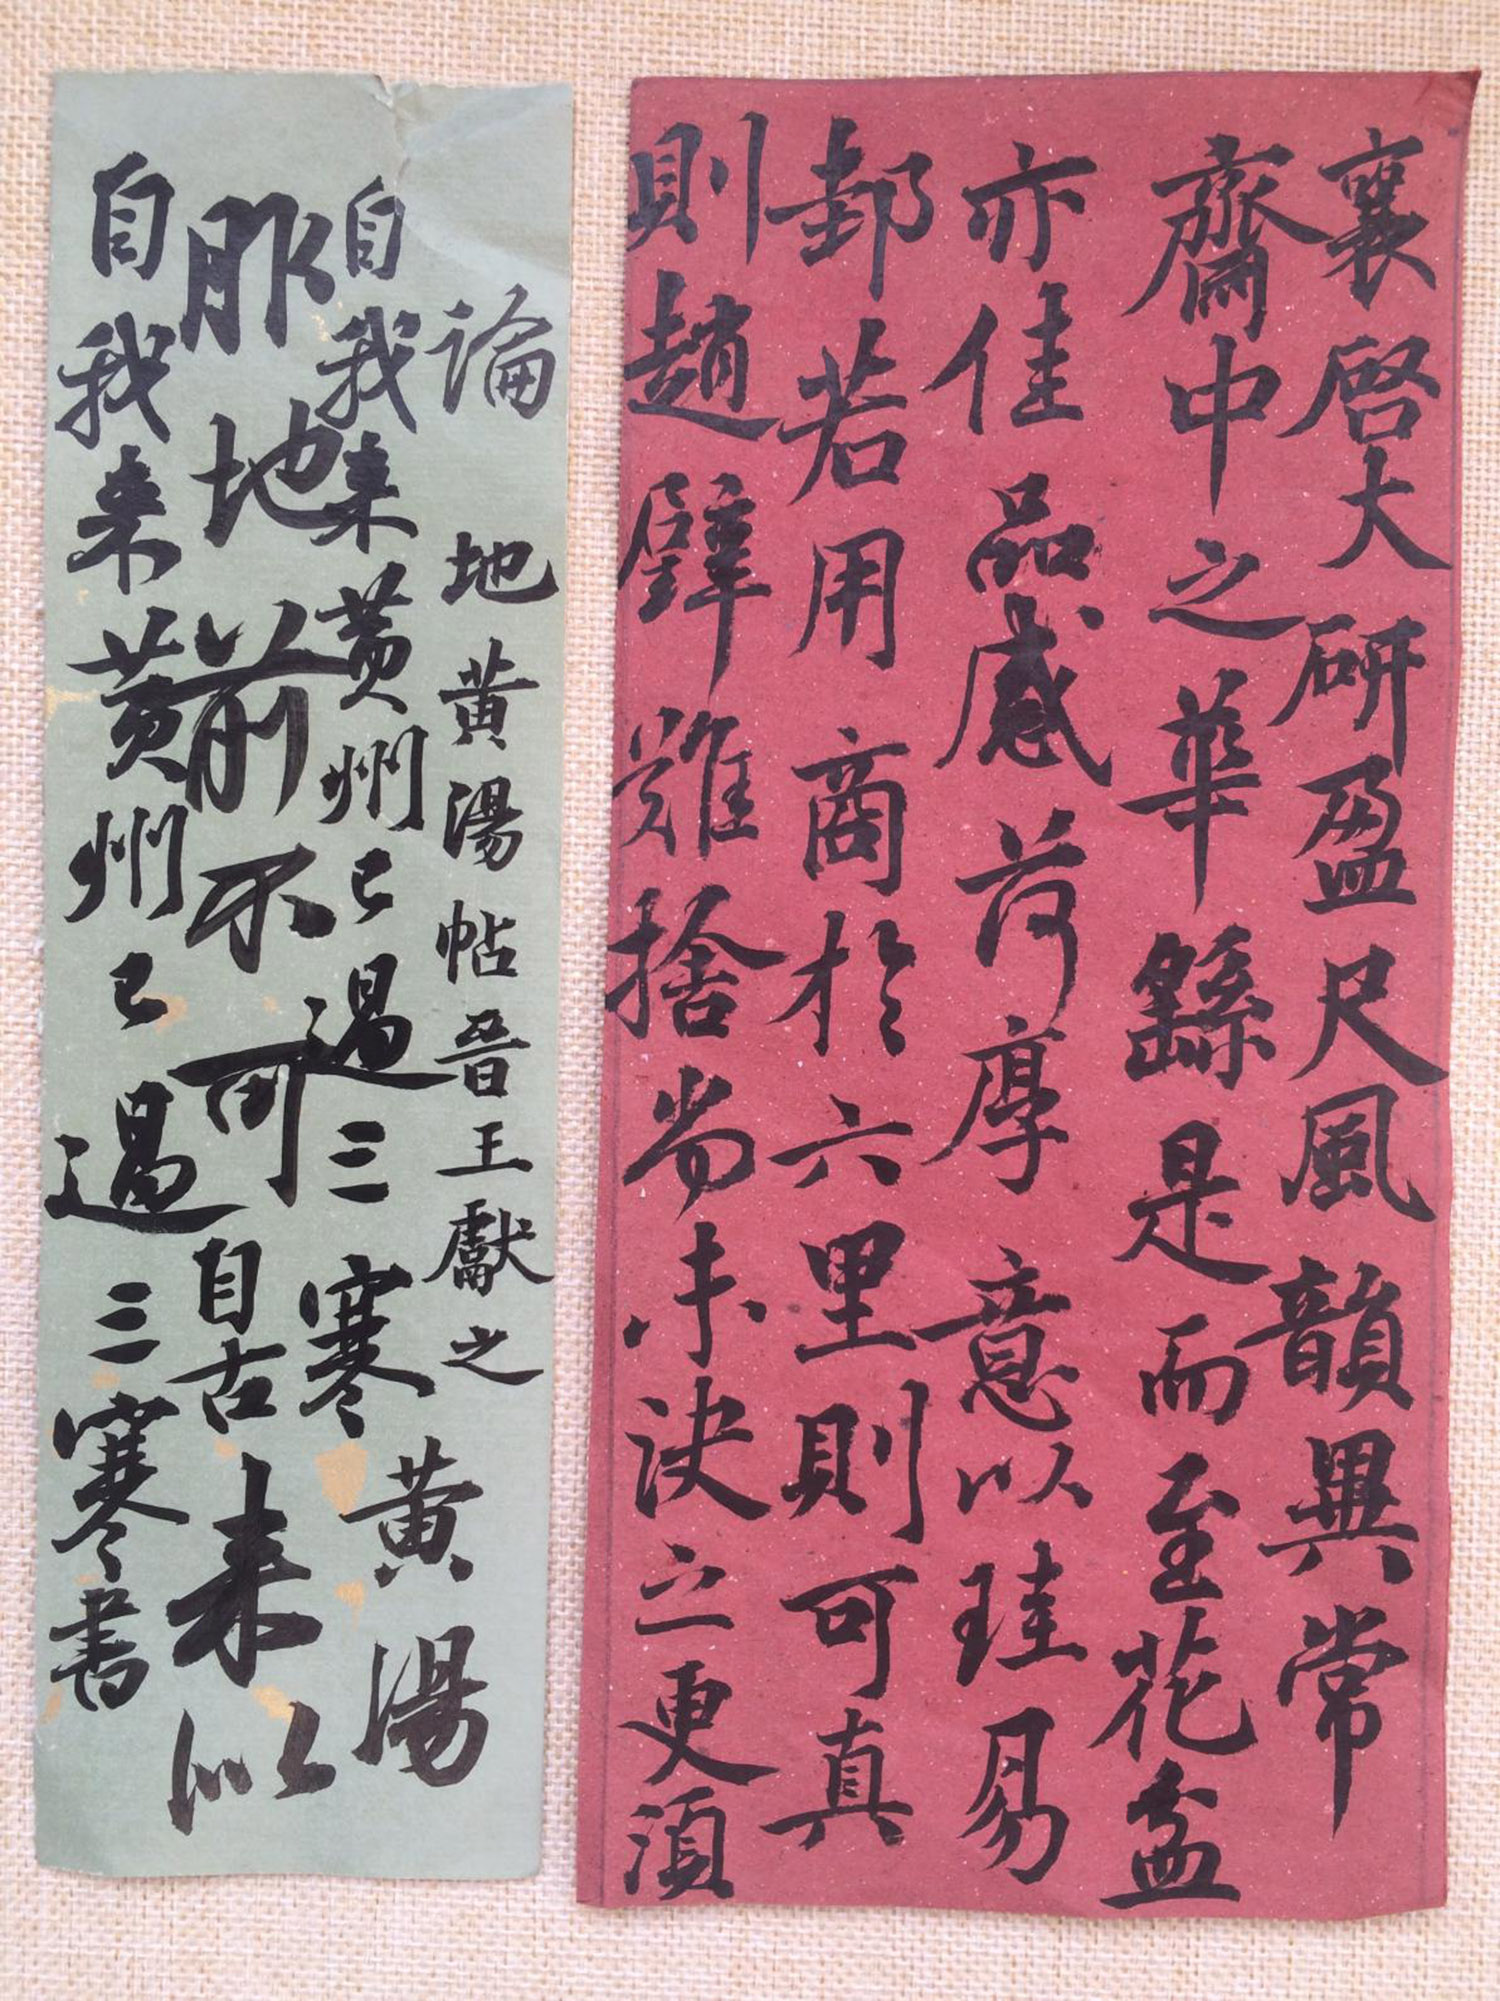 襄啓大研盈尺風韻異常
齋中之華繇是而至花盆
亦佳品感荷厚意以珪易
邽若用商於六里則可真
則趙璧難捨尚未決之更須
論
地黄湯帖晉王獻之
自我来黄州已過三寒黄湯
服地前不可自古来以
自我来黄州已過三寒書